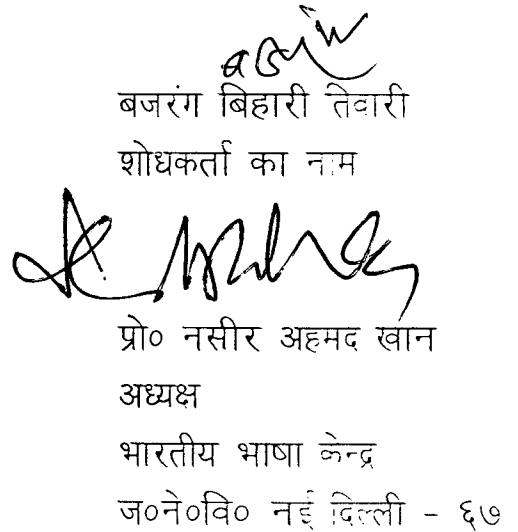 बजरंग बिहारी तेवारी
शोधकर्ता का नाम
प्रो० नसीर अहमद खान
अध्यक्ष
भारतीय भाषा केन्द्र
ज०ने०वि० नई दिल्ली - ६७